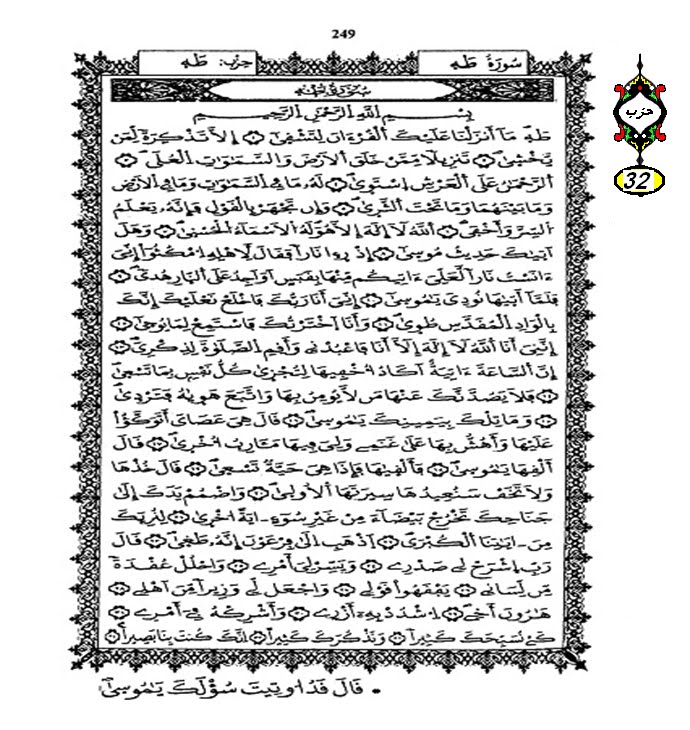 249
سُورَةُ طَهِ
حِزْب: طَهِ
سُورَةُ طَهَ
بِسْمِ اللَّهِ الرَّحْمَنِ الرَّحِيمِ
طَهِ مَا أَنزَلْنَا عَلَيْكَ الْقُرْءَانَ لِتَشْقِىٰ إِلَّا تَذْكِرَةً لِّمَنْ
يَّخْشِىٰ تَنزِيلًا مِّمَّنْ خَلَقَ الْأَرْضَ وَالسَّمَٰوَٰتِ الْعُلَى
الرَّحْمَٰنُ عَلَى الْعَرْشِ اِسْتَوِىٰ لَهُ مَا فِي السَّمَٰوَٰتِ وَمَا فِي الْأَرْضِ
وَمَا بَيْنَهُمَا وَمَا تَحْتَ الثَّرِىٰ وَإِن تَجْهَرْ بِالْقَوْلِ فَإِنَّهُ يَعْلَمُ
السِّرَّ وَأَخْفَى اللَّهُ لَا إِلَٰهَ إِلَّا هُوَ لَهُ الْأَسْمَاءُ الْحُسْنِىٰ وَهَلَ
اَتِيٰكَ حَدِيثُ مُوسِىٰ إِذْ رَءَا نَارًا فَقَالَ لِأَهْلِهِ اِمْكُثُوا إِنِّيَ
ءَانَسْتُ نَارًا لَّعَلِّيَ ءَاتِيكُم مِّنْهَا بِقَبَسٍ اَوَ اَجِدُ عَلَى النَّارِ هُدىً
فَلَمَّا أَتِيٰهَا نُودِيَ يَٰمُوسِىٰ إِنِّيَ أَنَا رَبُّكَ فَاخْلَعْ نَعْلَيْكَ إِنَّكَ
بِالْوَادِ الْمُقَدَّسِ طُوِىٰ وَأَنَا اَخْتَرْتُكَ فَاسْتَمِعْ لِمَا يُوحِىٰ
إِنَّنِيَ أَنَا اللَّهُ لَا إِلَٰهَ إِلَّا أَنَا فَاعْبُدْنِي وَأَقِمِ الصَّلَوٰةَ لِذِكْرِيَ
إِنَّ السَّاعَةَ ءَاتِيَةٌ اَكَادُ أُخْفِيهَا لِتُجْزِىٰ كُلُّ نَفْسٍ بِمَا تَسْعِىٰ
فَلَا يَصُدَّنَّكَ عَنْهَا مَن لَّا يُومِنُ بِهَا وَاتَّبَعَ هَوِيٰهُ فَتَرْدِىٰ
وَمَا تِلْكَ بِيَمِينِكَ يَٰمُوسِىٰ قَالَ هِيَ عَصَايَ أَتَوَكَّؤُا
عَلَيْهَا وَأَهُشُّ بِهَا عَلَىٰ غَنَمِي وَلِيَ فِيهَا مَـَٔارِبُ أُخْرِىٰ قَالَ
أَلْقِهَا يَٰمُوسِىٰ فَأَلْقِيٰهَا فَإِذَا هِيَ حَيَّةٌ تَسْعِىٰ قَالَ خُذْهَا
وَلَا تَخَفْ سَنُعِيدُهَا سِيرَتَهَا الْأُولِىٰ وَاضْمُمْ يَدَكَ إِلَىٰ
جَنَاحِكَ تَخْرُجْ بَيْضَاءَ مِنْ غَيْرِ سُوءٍ ـ اٰيَةً اُخْرِىٰ لِنُرِيَكَ
مِنَ ـ اٰيَٰتِنَا الْكُبْرَى اَذْهَبِ اِلَىٰ فِرْعَوْنَ إِنَّهُ طَغِىٰ قَالَ
رَبِّ اِشْرَحْ لِي صَدْرِي وَيَسِّرْ لِيَ أَمْرِي وَاحْلُلْ عُقْدَةً
مِّن لِّسَانِي يَفْقَهُوا قَوْلِي وَاجْعَل لِّي وَزِيرًا مِّنَ اَهْلِي
هَٰرُونَ أَخِي اَشْدُدْ بِهِ أَزْرِي وَأَشْرِكْهُ فِي أَمْرِي
كَيْ نُسَبِّحَكَ كَثِيرًا وَنَذْكُرَكَ كَثِيرًا اِنَّكَ كُنتَ بِنَا بَصِيرًا
• قَالَ قَدُ اوتِيتَ سُؤْلَكَ يَٰمُوسِىٰ
حزب
32